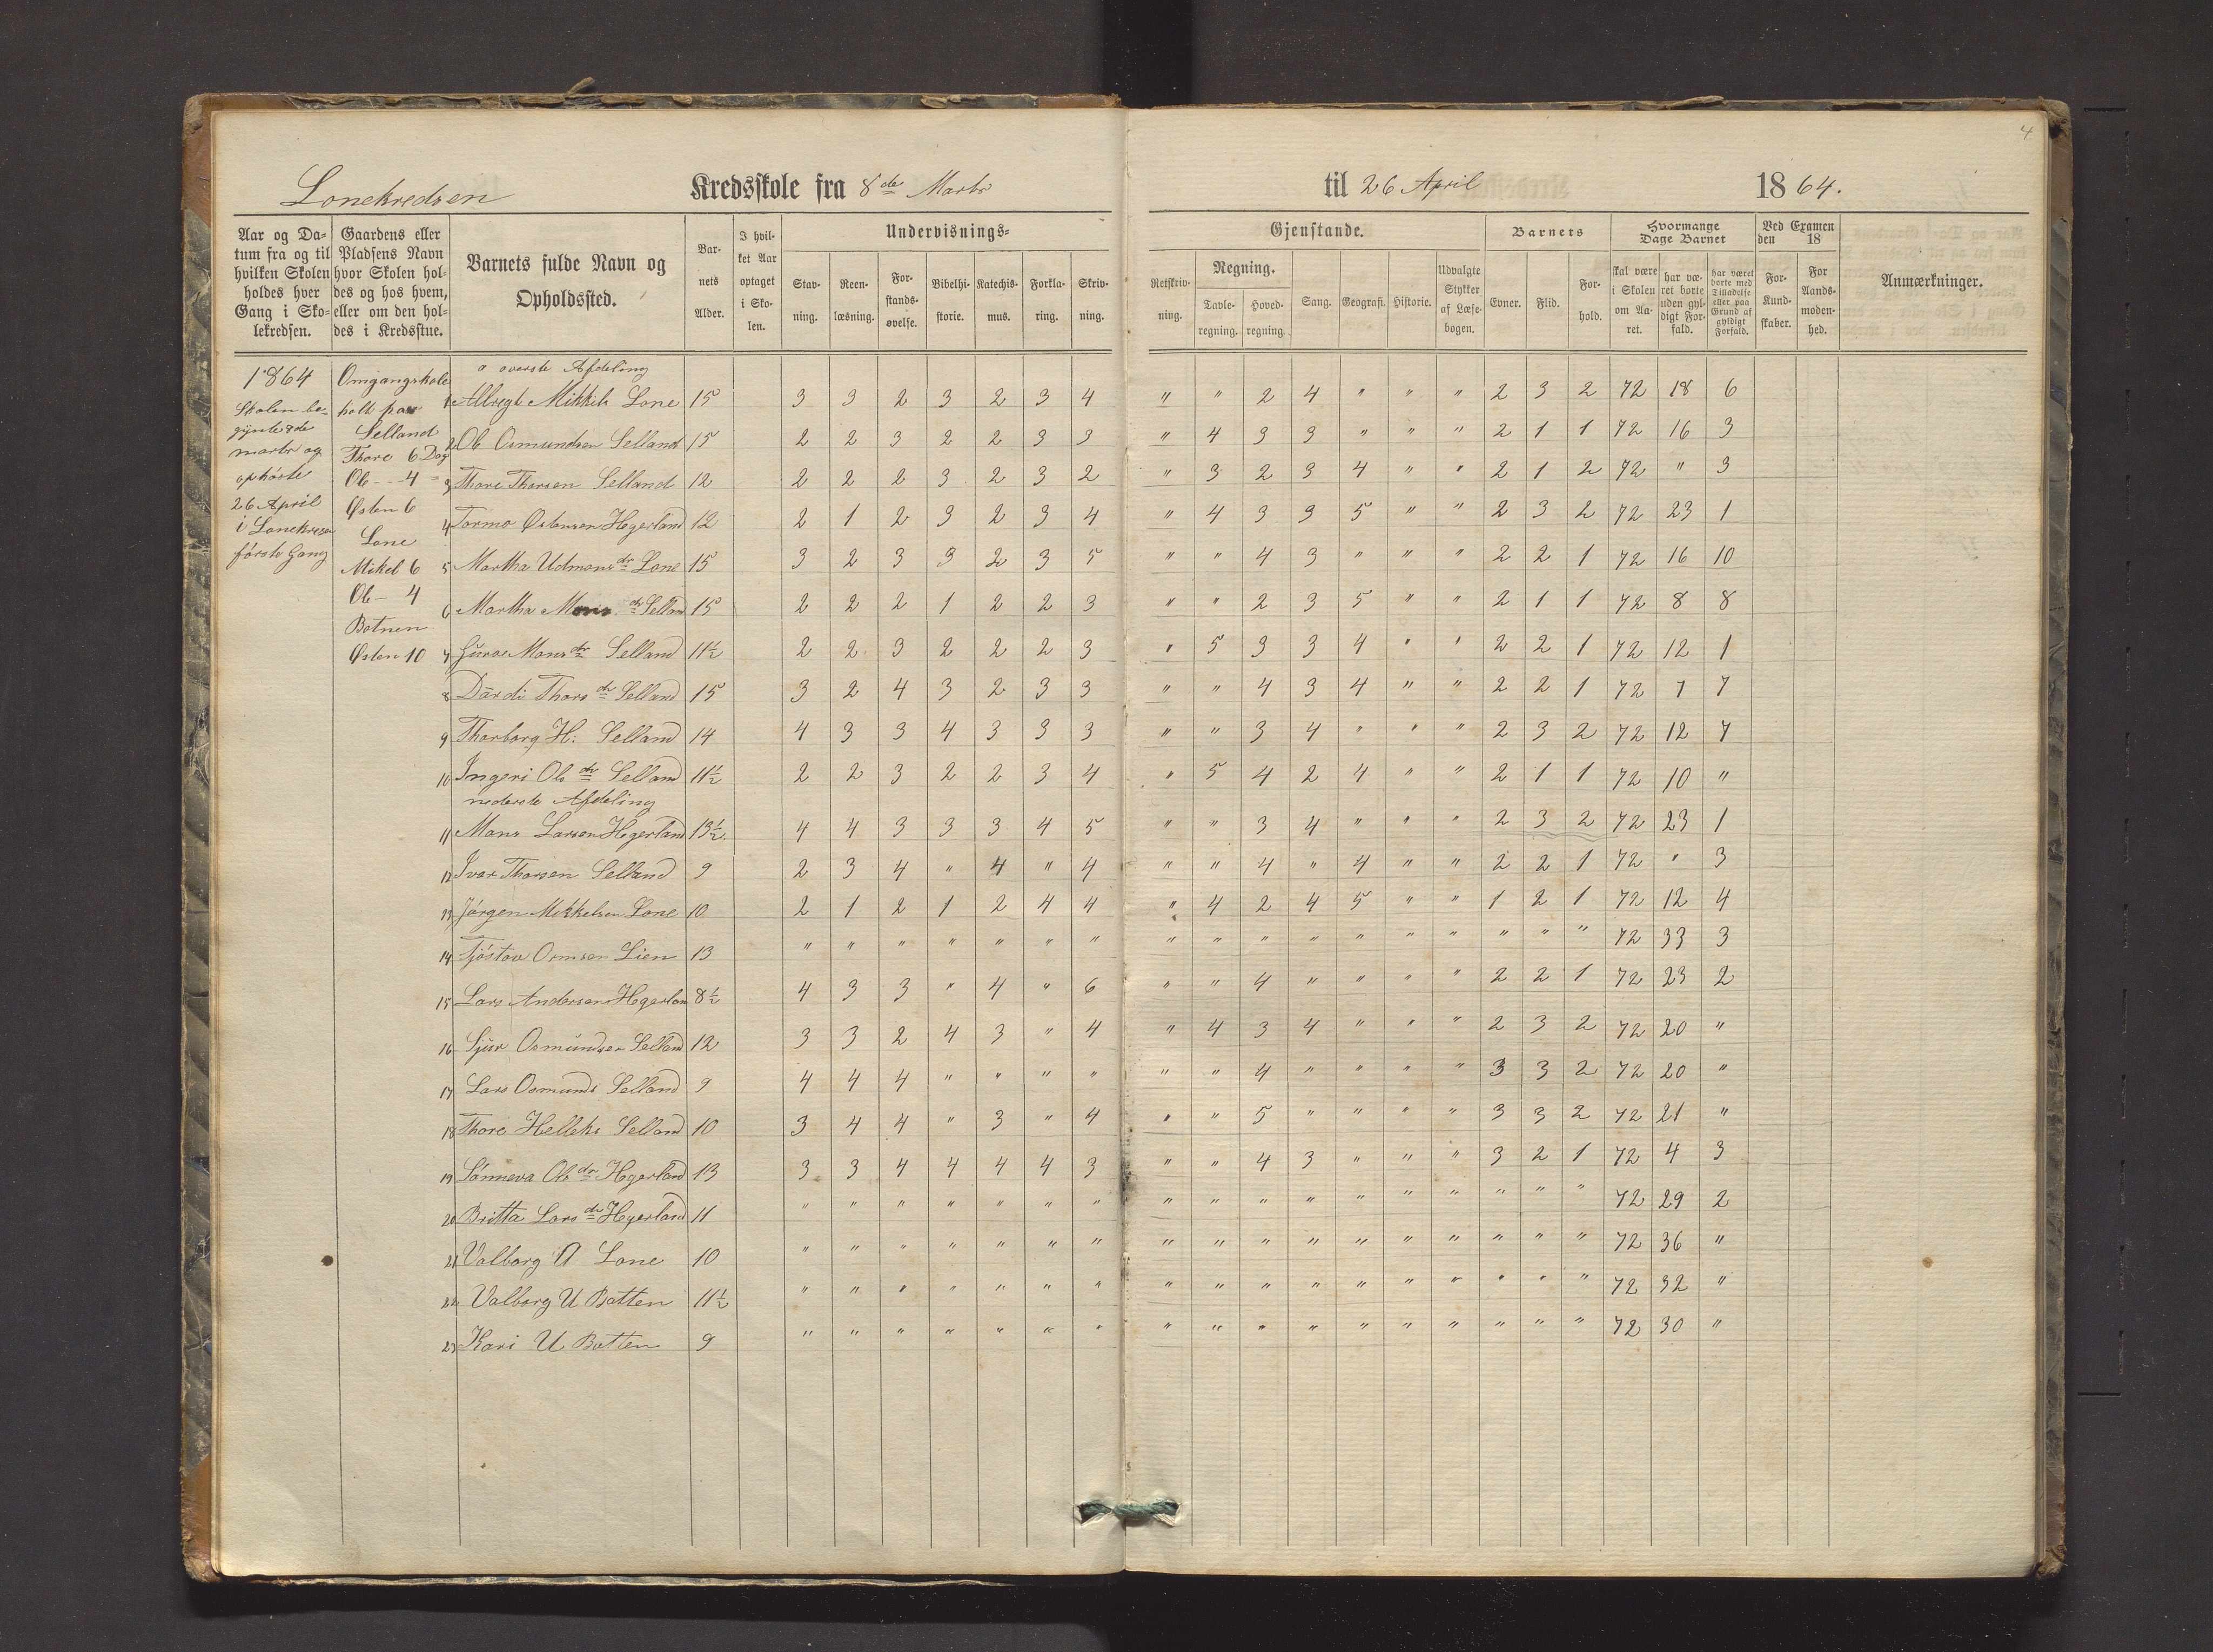 4
Lonekredsen Kredsskole fra 8de Marts til 26 April 1864.
Aar og Da=
tum fra og til
hvilken Skolen
holdes hver
Gang i Sko=
lekredsen.
Gaardens eller
Pladsens Navn
hvor Skolen hol=
des og hos hvem,
eller om den hol=
des i Kredsstue.
Barnets fulde Navn og
Opholdssted.
Bar-
nets
Alder.
I hvil-
ket Aar
optaget
i Sko-
len.
Undervisnings=
Stav-
ning.
Reen-
læsning.
For-
stands-
øvelse.
Bibelhi-
storie.
Katechis-
mus.
Forkla-
ring.
Skriv-
ning.
Gjenstande.
Retskriv-
ning.
Regning.
Tavle-
regning.
Hoved-
regning.
Sang.
Geografi.
Historie.
Udvalgte
Stykker
af Læse-
bogen.
Barnets
Evner.
Flid.
For-
hold.
Hvormange
Dage Barnet
skal være
i Skolen
om Aa-
ret.
har væ-
ret borte
uden gyl-
digt For-
fald.
har været
borte med
Tilladelse
eller paa
Grund af
gyldigt
Forfald.
Ved Examen
den 18
For-
Kund-
skaber.
For
Aands-
moden-
hed.
Anmærkninger.
1864
Skolen be=
gynte 8de
marts og
ophørte
26 April
i Lonekredsen
første Gang
Omgangskole
holt paa
Selland
Thore 6 Dag
Ole - - 4 =
Østen 6
Lone
Mikel 6
Ole - 4
Botnen
Østen 10
a overste Afdeling
1 Albregt Mikkels Lone 15 3 3 2 3 2 3 4 " " 2 4 " " " 2 3 2 72 18 6
2 Ole Osmundsen Selland 15 2 2 3 2 2 3 3 " 4 3 3 " " " 2 1 1 72 16 3
3 Thore Thorsen Selland 12 2 2 2 3 2 3 2 " 3 2 3 4 " " 2 1 2 72 " 3
4 Tormo Østensen Hegerland 12 2 1 2 3 2 3 4 " 4 3 3 5 " " 2 3 2 72 23 1
5 Martha Udmonsdr Lone 15 3 2 3 3 2 3 5 " " 4 3 " " " 2 2 1 72 16 10
6 Martha Mons dr Selland 15 2 2 2 1 2 2 3 " " 2 3 5 " " 2 1 1 72 8 8
7 Guroe Monsdr Selland 11½ 2 2 3 2 2 2 3 " 5 3 3 4 " " 2 2 1 72 12 1
8 Dárdi Thorsdr Selland 15 3 2 4 3 2 3 3 " " 4 3 4 " " 2 2 1 72 7 7
9 Thorborg H: Selland 14 4 3 3 4 3 3 3 " " 3 4 " " " 2 3 2 72 12 7
10 Ingeri Olsdr Selland 11½ 2 2 3 2 2 3 4 " 5 4 2 4 " " 2 1 1 72 10 "
nederste Afdeling
11 Mons Larsen Hegerland 13½ 4 4 3 3 3 4 5 " " 3 4 " " " 2 3 2 72 23 1
12 Ivar Thorsen Selland 9 2 3 4 " 4 " 4 " " 4 " 4 " " 2 2 1 72 " 3
13 Jørgen Mikkelsen Lone 10 2 1 2 1 2 4 4 " 4 2 4 5 " " 1 2 1 72 12 4
14 Tjøstov Ormsen Lien 13 " " " " " " " " " " " " " " " " " 72 33 3
15 Lars Andersen Hegerlan 8½ 4 3 3 " 4 " 6 " " 4 " " " " 2 2 1 72 23 2
16 Sjur Osmundsen Selland 12 3 3 2 4 3 " 4 " 4 3 4 " " " 2 3 2 72 20 "
17 Lars Osmunds Selland 9 4 4 4 " " " " " " 4 " " " " 3 3 2 72 20 "
18 Thore Helleks Selland 10 3 4 4 " 3 " 4 " " 5 " " " " 3 3 2 72 21 "
19 Sønneva Olsdr Hegerland 13 3 3 4 4 4 4 3 " " 4 3 " " " 3 2 1 72 4 3
20 Britta Larsdr Hegerland 11 " " " " " " " " " " " " " " " " " 72 29 2
21 Valborg A Lone 10 " " " " " " " " " " " " " " " " " 72 36 "
22 Valborg U Botten 11½ " " " " " " " " " " " " " " " " " 72 32 "
23 Kari U Botten 9 " " " " " " " " " " " " " " " " " 72 30 "